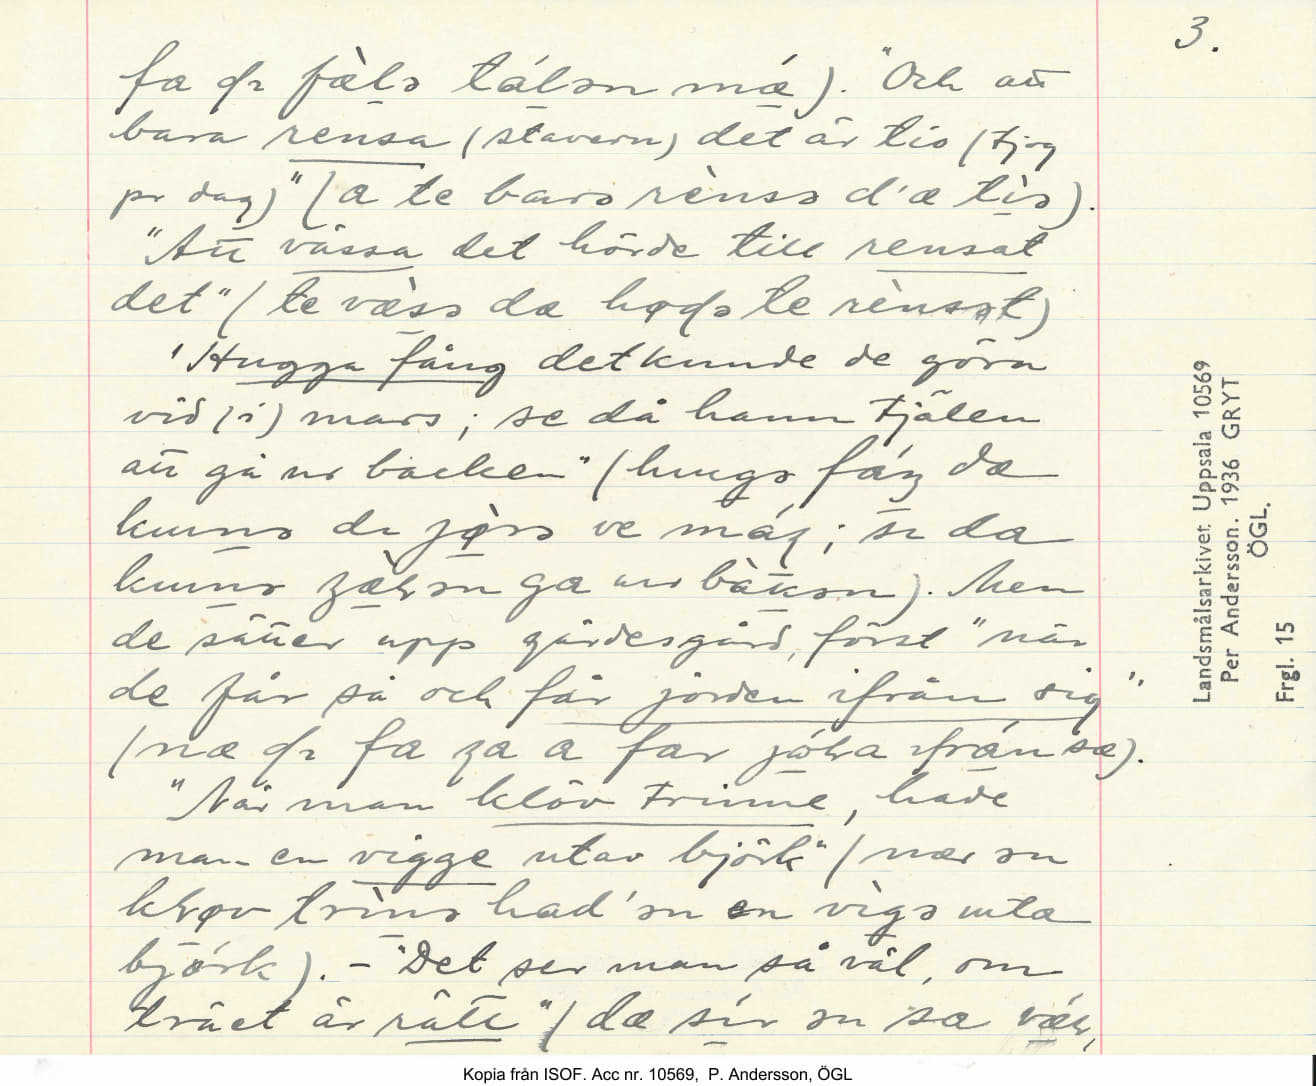 3.
fa di fäls tálən má). "Och att
bara rensa (stavern) det är tio (tjog
pr dag)" (a te barə rènsə d'æ tìə).
"Att vässa det hörde till rensat
det" (te væ̀sə da te rènsət)
"Hugga fång det kunde de göra
vid (i) mars; se då hann tjälen
att gå ur backen" (hugə fáŋ da
ve má; da
ga ur bàkən). Men
de sätter upp gärdesgård, först "när
de får så och får jorden ifrån sig"
(næ fa a far ifrán sæ).
"När man klöv trinne, hade
man en vigge utav björk" (nær ən
trìnə had'ən en vìgə uta
bjǿrk). – "Det ser man så väl, om
träet är rätt" (dæ sír ən sa
Landsmålsarkivet. Uppsala 10569
Per Andersson. 1936 GRYT
ÖGL.
Frgl. 15
Kopia från ISOF. Acc nr. 10569, P. Andersson, ÖGL